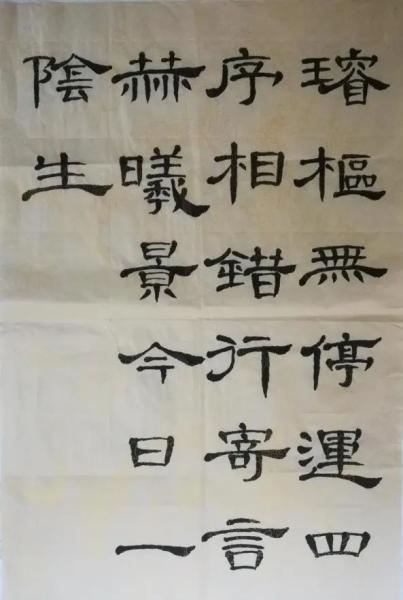 璿樞無停運四
序相錯行寄言
赫曦景今日一
陰生